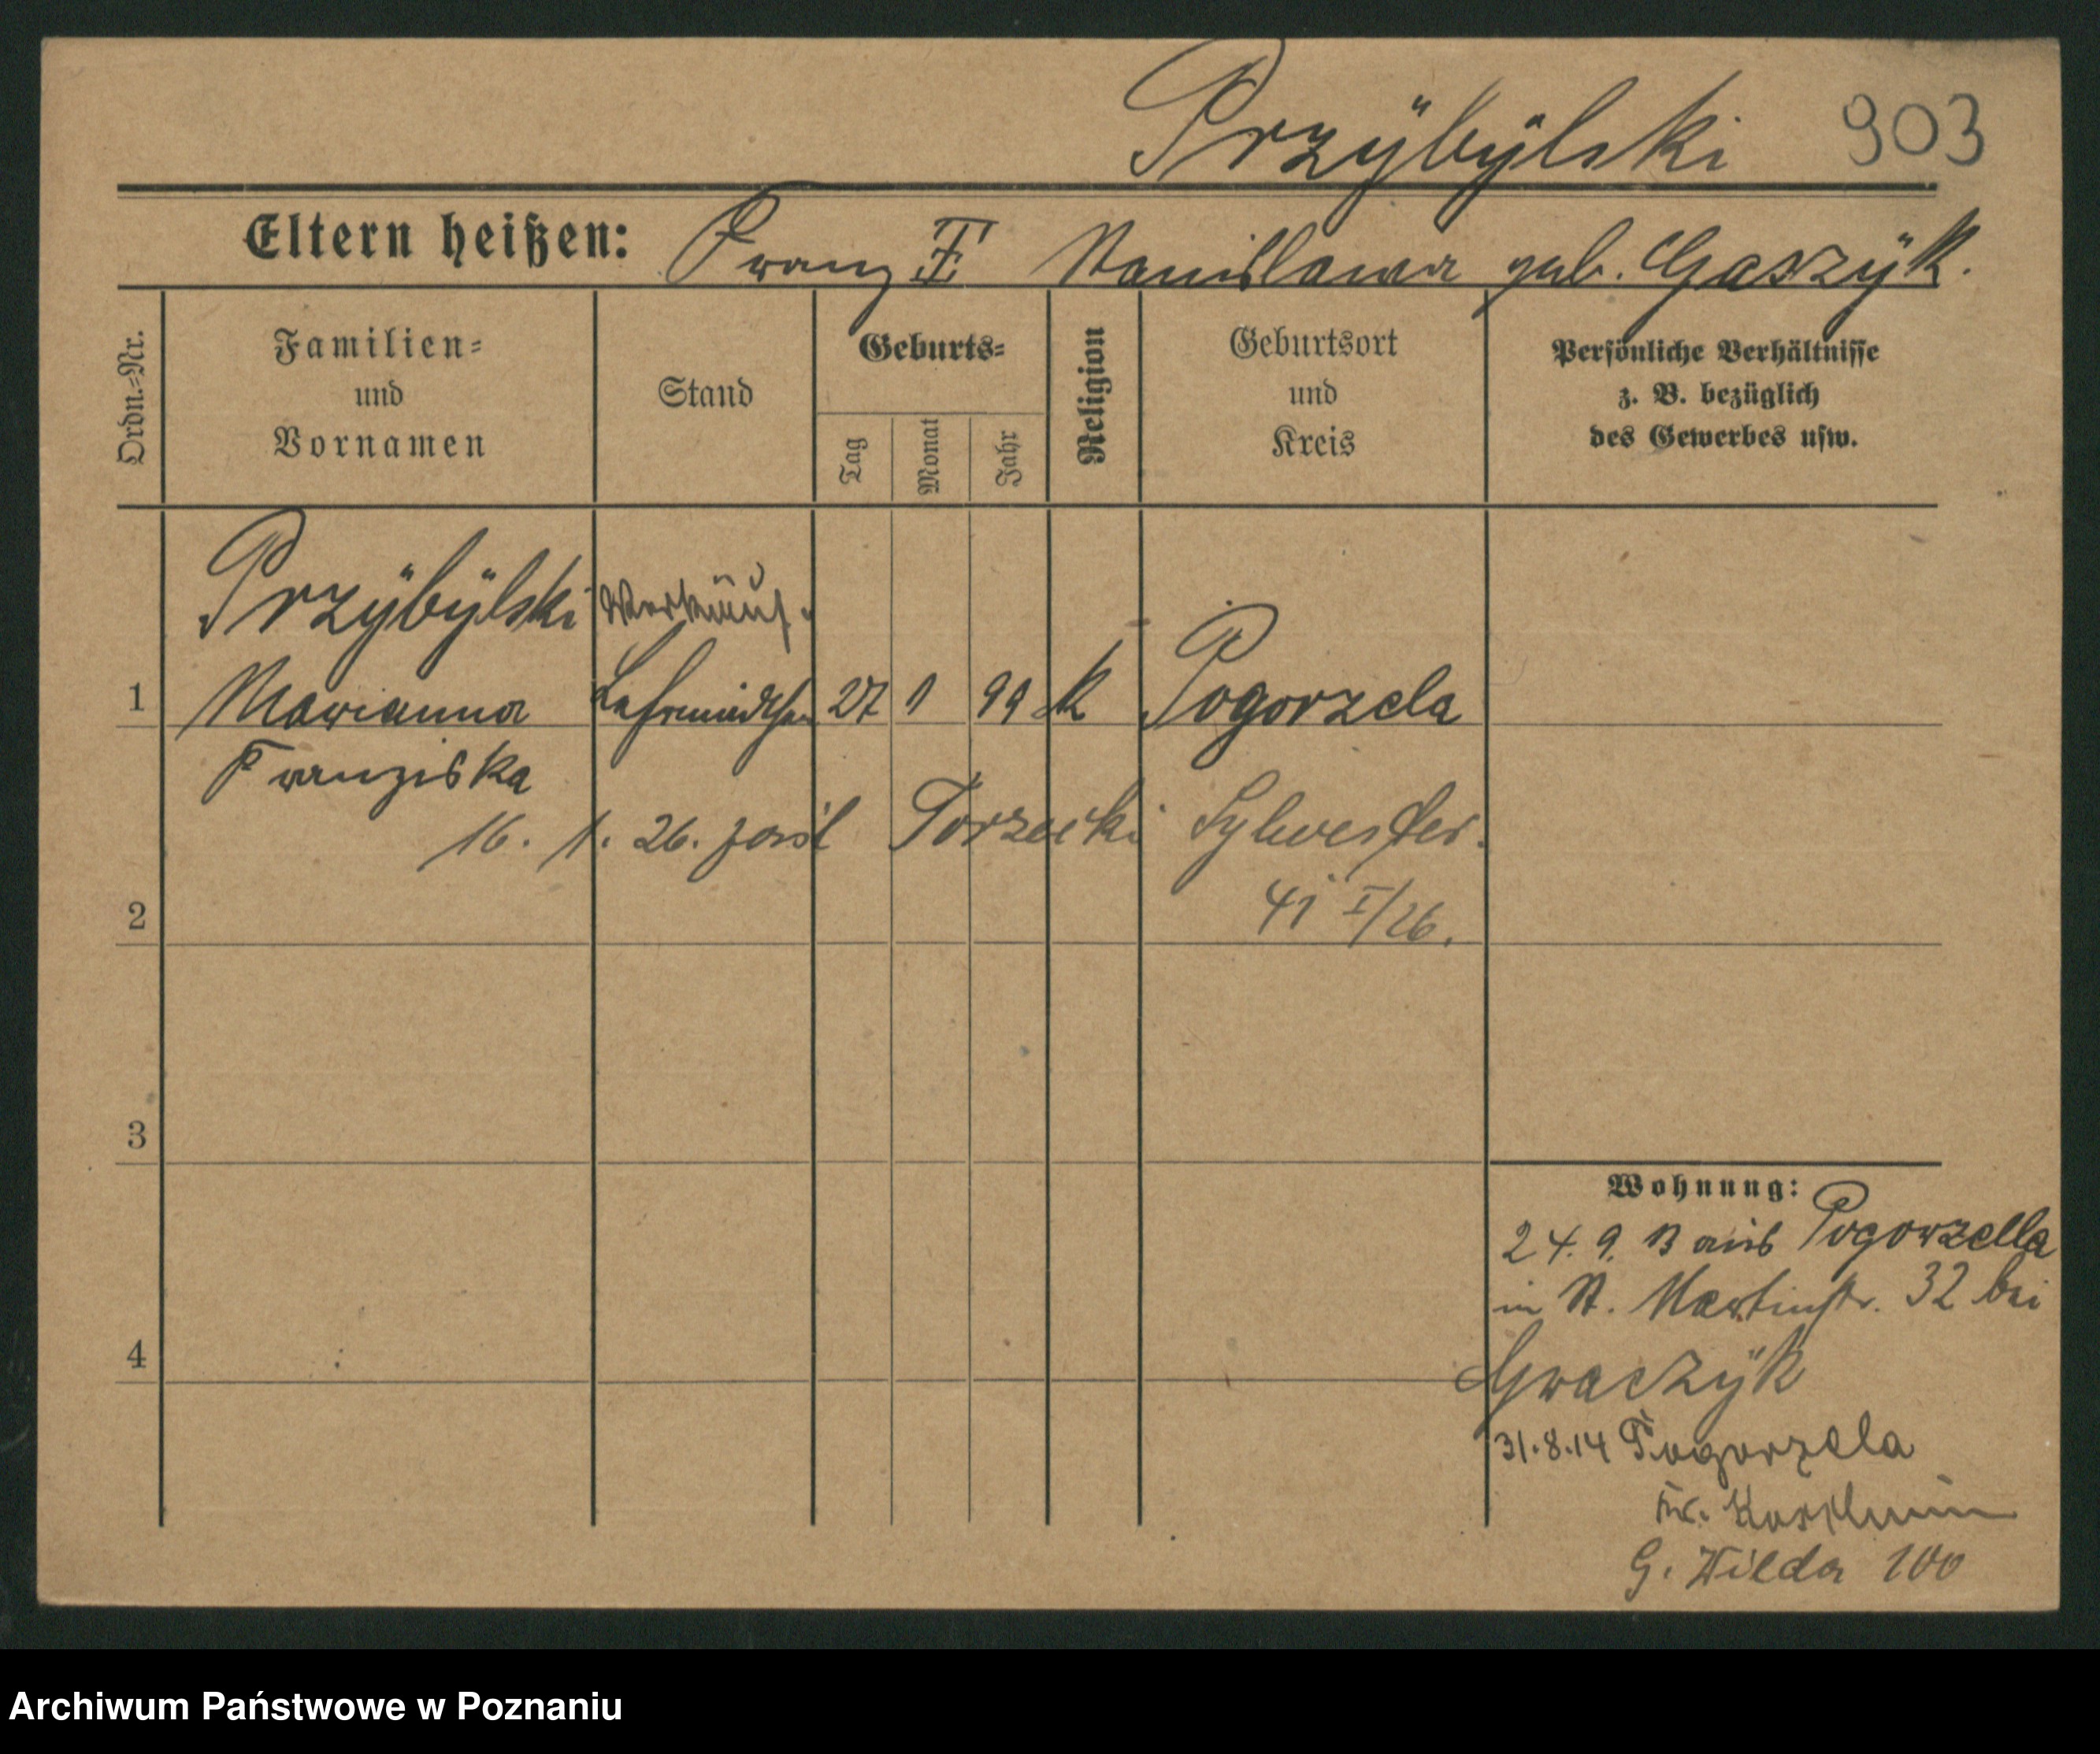 Przÿbÿlski 903
Eltern heißen: Franz Stanislawa geb. Gaszÿk.
Ordn.=Nr.
Familien=
und
Vornamen
Stand
Geburts=
Tag
Monat
Jahr
Religion
Geburtsort
und
Kreis
Persönliche Verhältnisse
z. B. bezüglich
des Gewerbes usw.
Przÿbÿlski Verkäuf.
1 Marianna Lehrmädchen 27 1 99 k Pogorzela
Franziska
16. 1. 26. Torzecki Sylwester.
41 I/26.
2
3
4
Wohnung:
24. 9. 13 aus Pogorzella
in St. Martinstr. 32 bei
Graczÿk
31.8.14 Pogorzela
Kr. Koschmin
G. Wilda 100
Archiwum Państwowe w Poznaniu